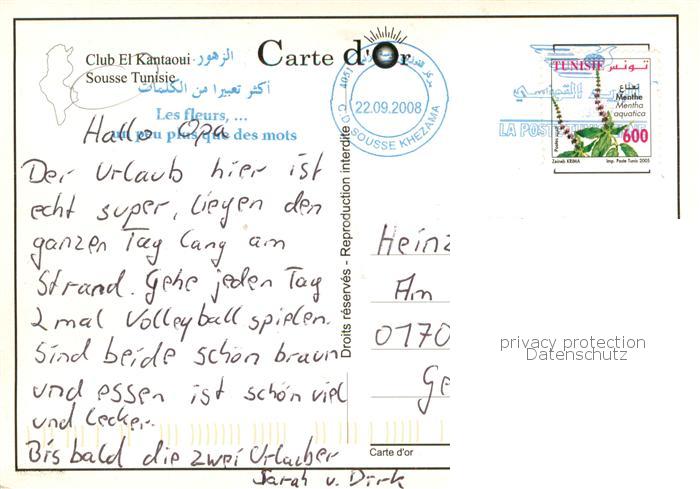 Club El Kantaoui
Sousse Tunisie
Carte d'Or
الزهور
أكثر تعبيرا من الكلمات
Les fleurs, ...
un peu plus que des mots
4051
22.09.2008
C.D. SOUSSE KHEZAMA
TUNISIE تونس
نعناع
Menthe
Mentha
aquatica
600
Zeineb KRIMA
Imp. Poste Tunis 2005
البريد التونسي
LA POSTE
Hallo Opa
Der Urlaub hier ist
echt super, liegen den
ganzen Tag lang am
Strand. Gehe jeden Tag
2 mal Volleyball spielen.
Sind beide schön braun
und essen ist schön viel
und lecker.
Bis bald die zwei Urlauber
Sarah u. Dirk
Droits réservés - Reproduction interdite
Heinz
Am
0170
Ge
Carte d'or
privacy protection
Datenschutz